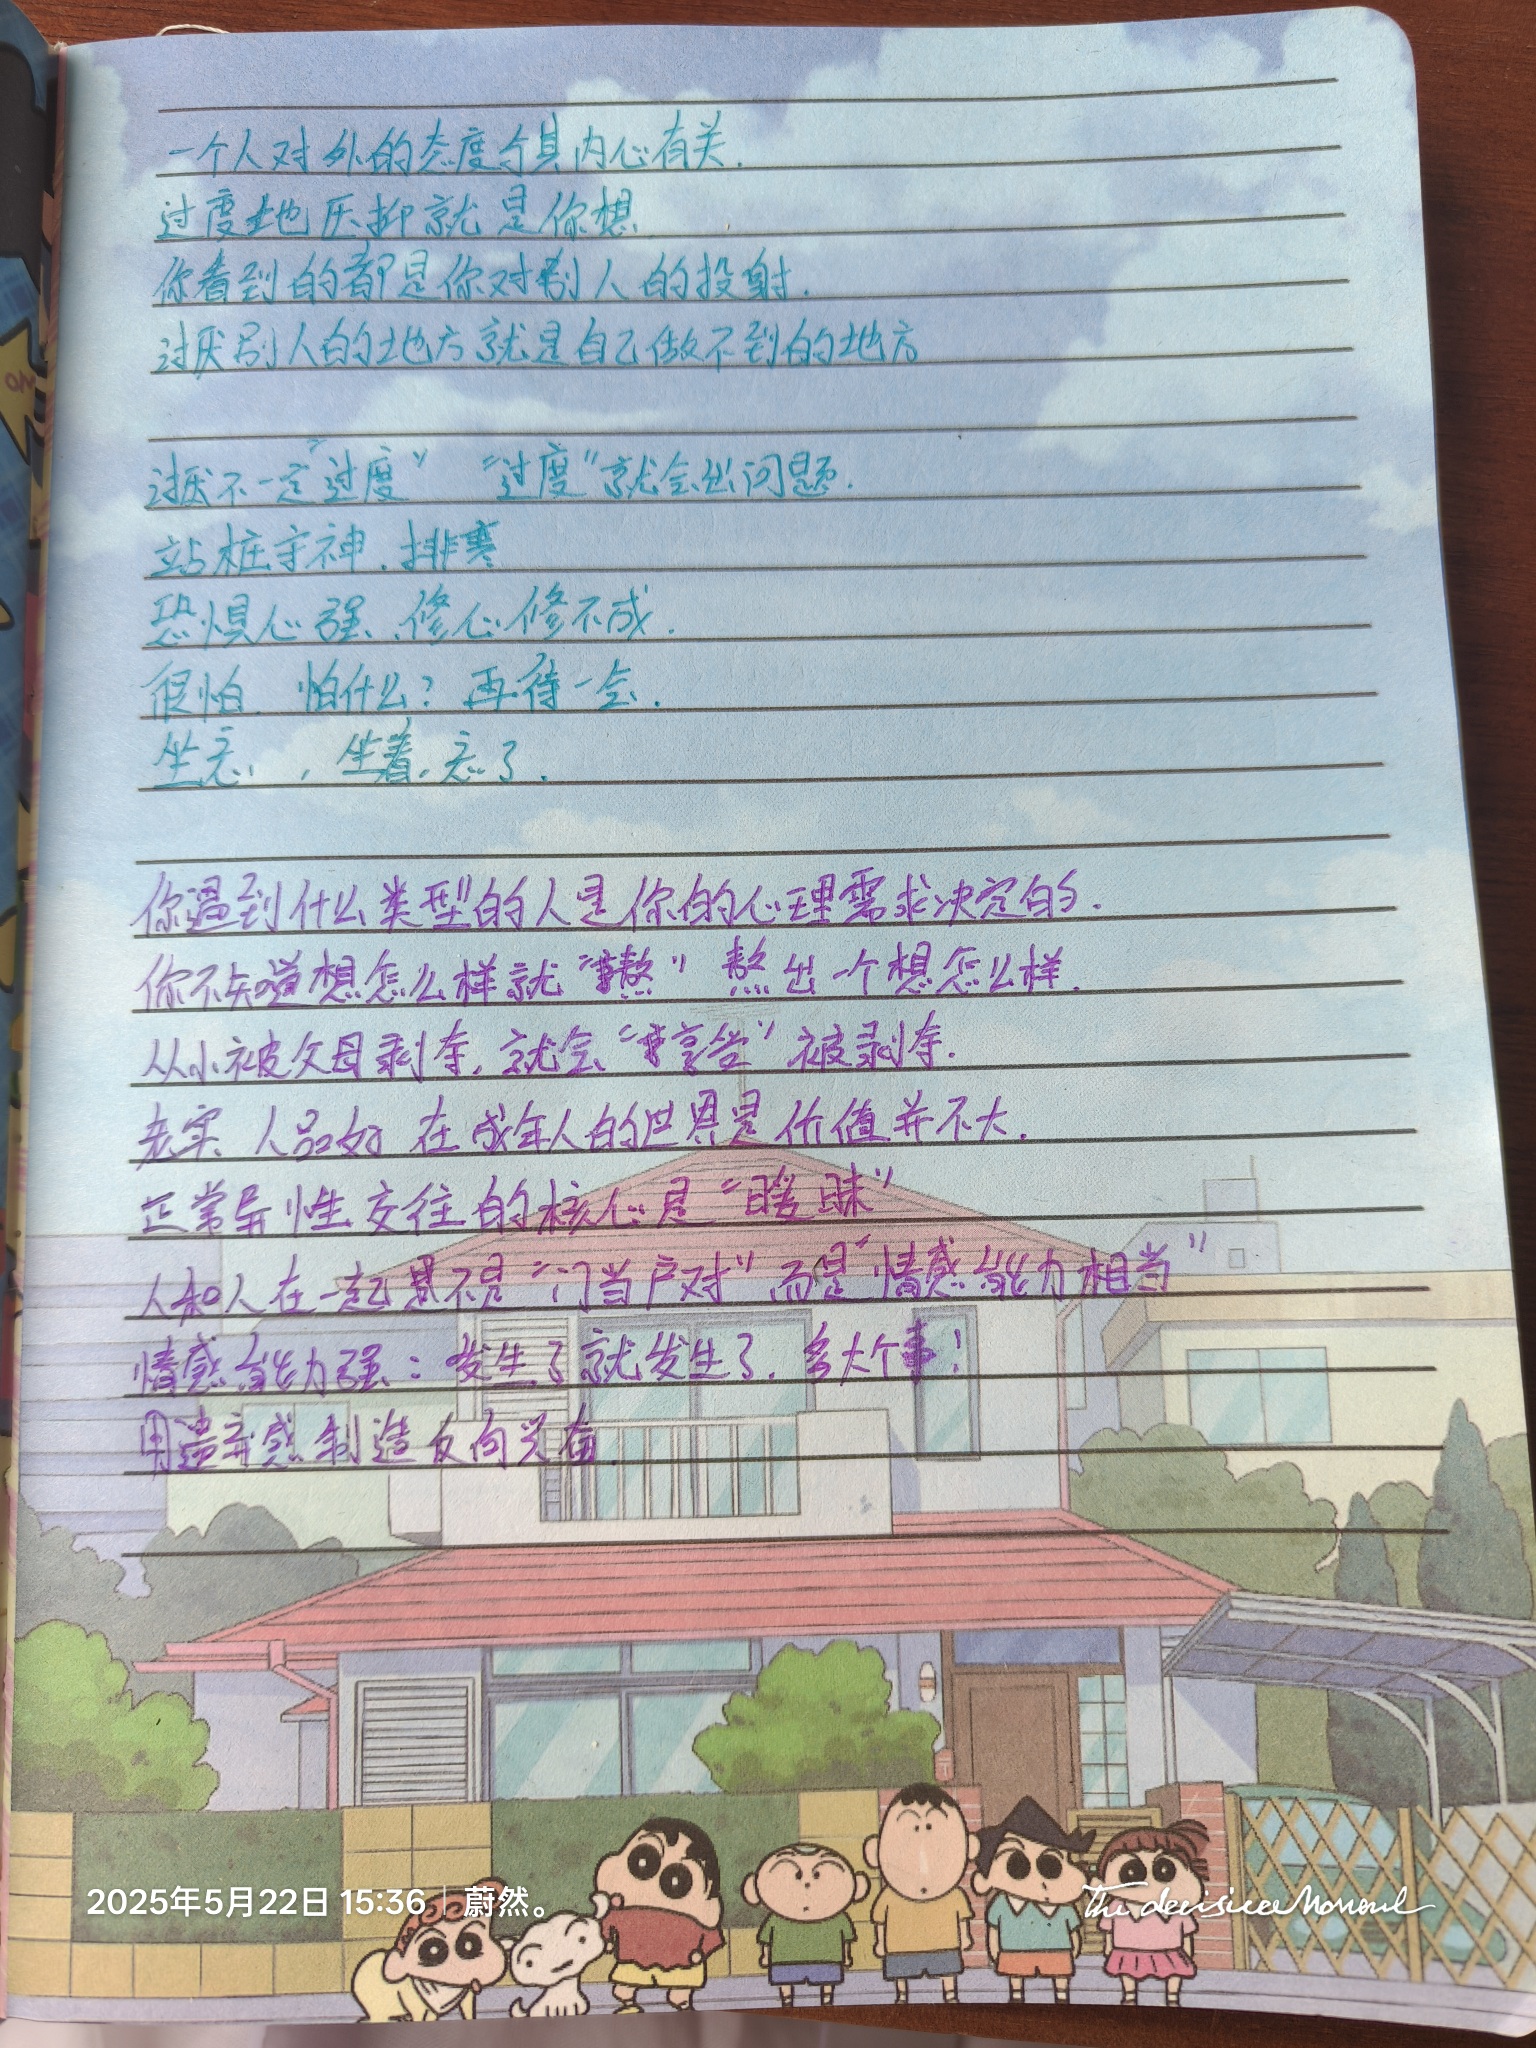 一个人对外的态度与其内心有关.
过度地压抑就是你想
你看到的都是你对别人的投射.
讨厌别人的地方就是自己做不到的地方
讨厌不一定"过度" "过度"就会出问题.
站桩守神.排寒
恐惧心强、修心修不成.
很怕. 怕什么?再待一会.
坐忘, 坐着,忘了.
你遇到什么类型的人是你的心理需求决定的.
你不知道想怎么样就"熬" 熬出一个想怎么样.
从小被父母剥夺,就会"享受"被剥夺.
老实 人品好 在成年人的世界是价值并不大.
正常异性交往的核心是"暧昧"
人和人在一起不是"门当户对"而是"情感能力相当"
情感能力强:发生了就发生了.多大个事!
用遗弃感制造反向兴奋.
2025年5月22日 15:36 | 蔚然。
The decisive Moment